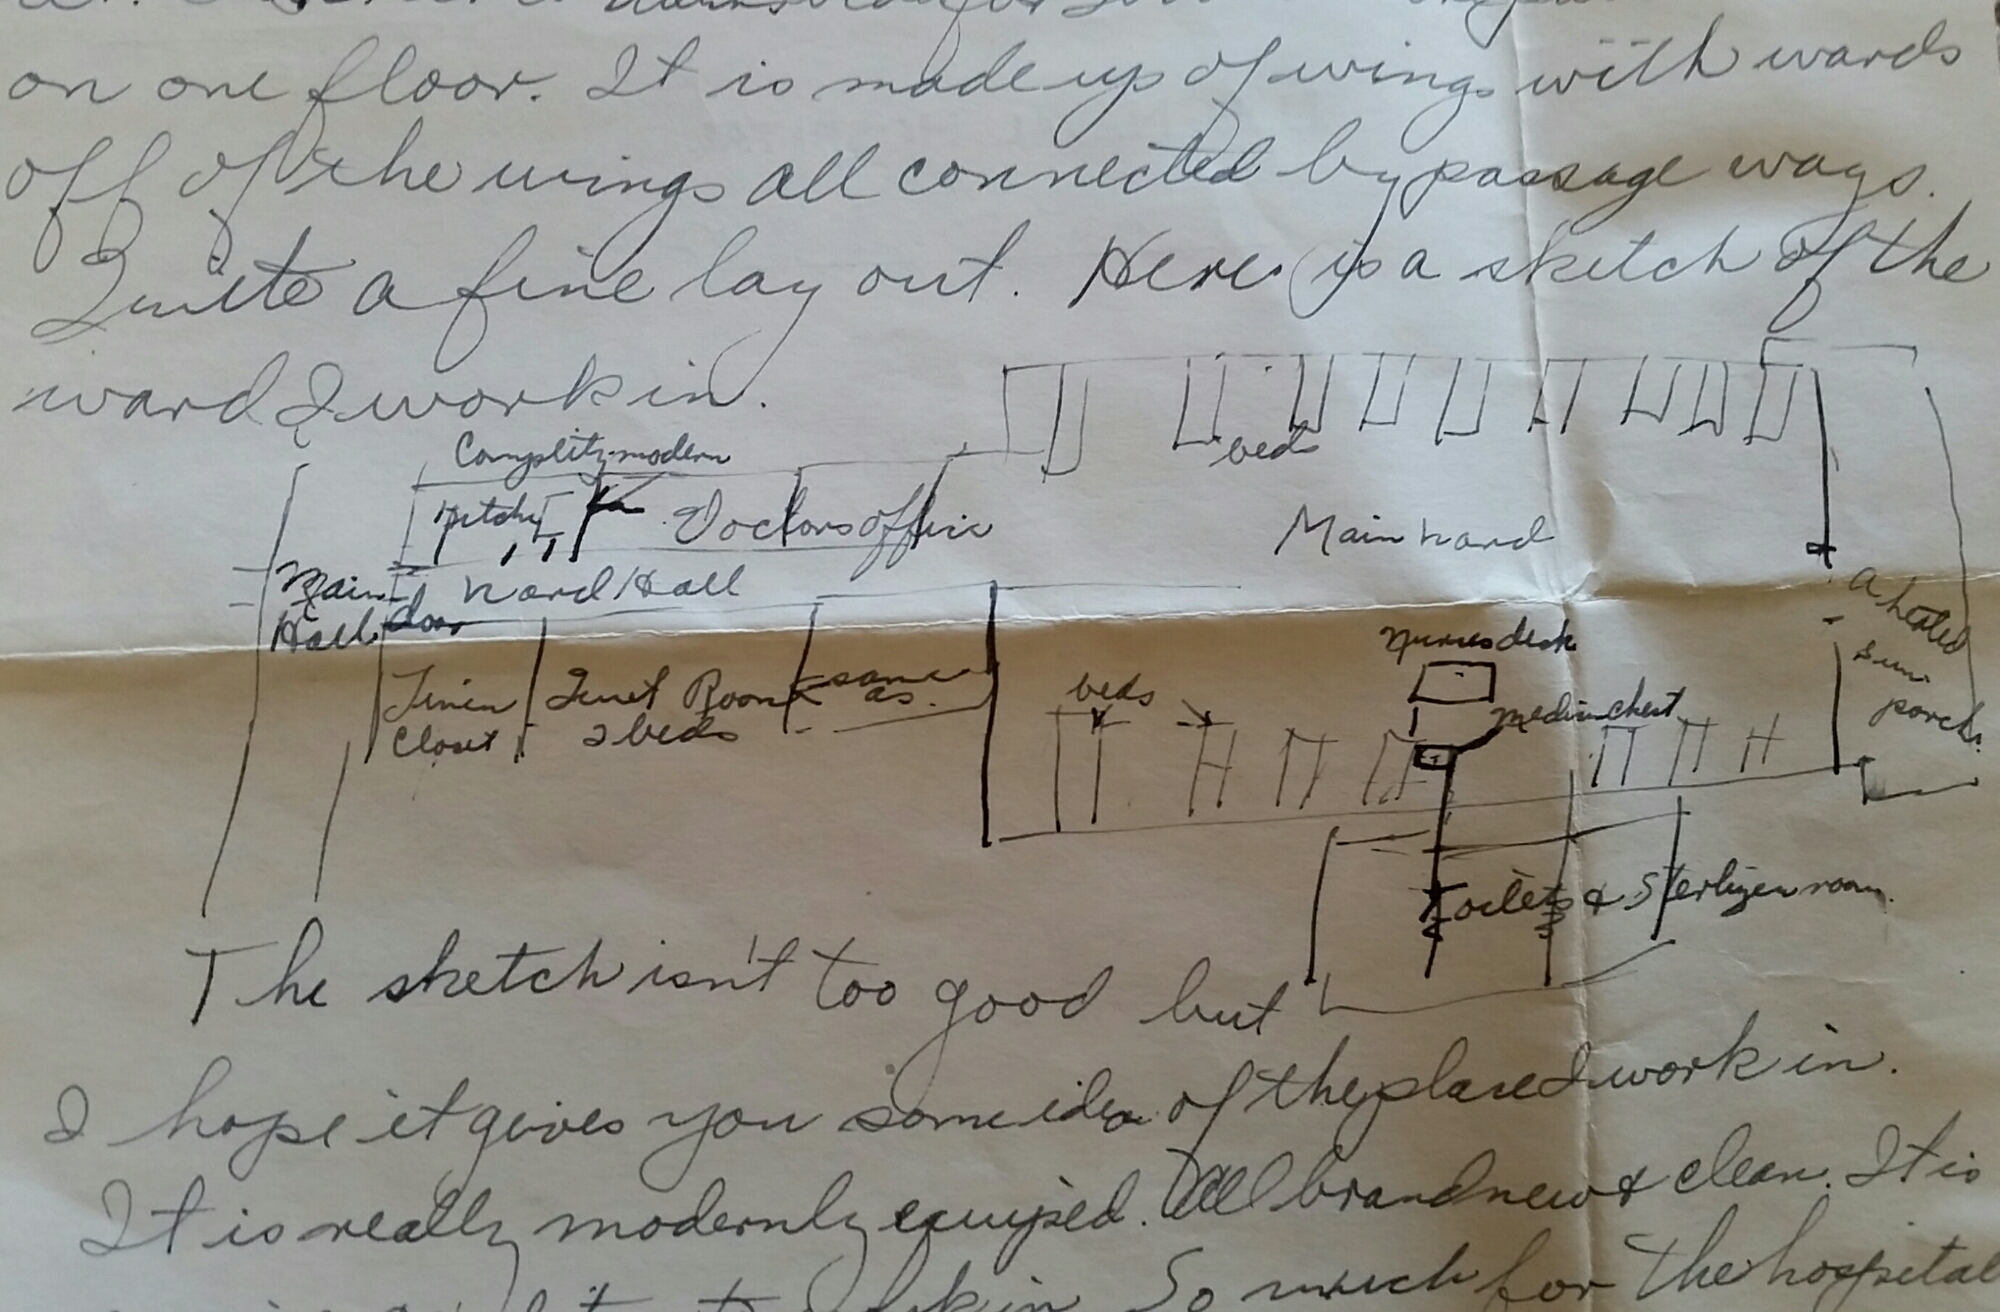 on one floor. It is made up of wings with wards
off of the wings all connected by passage ways.
Quite a fine lay out. Here is a sketch of the
ward I work in.
beds
modern
Doctors office
Main ward
Main
Hall
door
Ward Hall
a heated
sun
porch.
Nurses desk
Linen
Closet
Quiet Room
2 beds
same
as
beds
chest
Toilets &
room
The sketch isn't too good but
I hope it gives you some idea of the place I work in.
It is really modernly equiped. All brand new & clean. It is
So much for the hospital